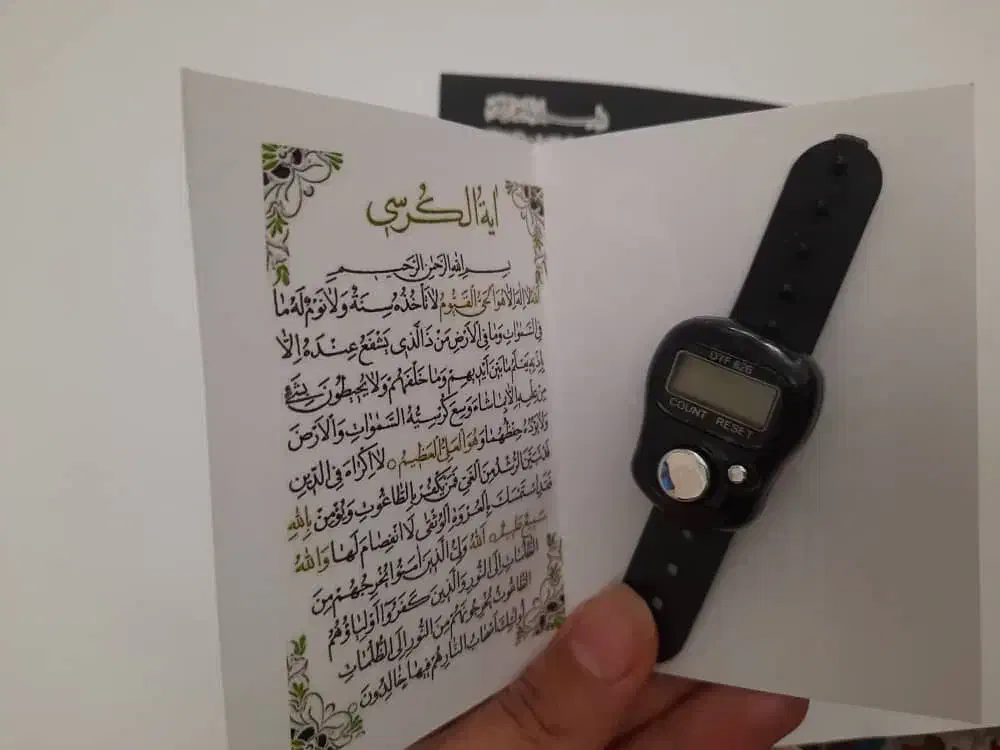 اية الكرسي
بسم الله الرحمن الرحيم
الله لا اله الا هو الحي القيوم لا تأخذه سنة ولا نوم له ما
في السموات وما في الارض من ذا الذي يشفع عنده الا
باذنه يعلم ما بين ايديهم وما خلفهم ولا يحيطون بشيء
من علمه الا بما شاء وسع كرسيه السموات والارض
ولا يؤده حفظهما وهو العلي العظيم لا اكراه في الدين
قد تبين الرشد من الغي فمن يكفر بالطاغوت ويؤمن بالله
فقد استمسك بالعروة الوثقى لا انفصام لها والله
سميع عليم الله ولي الذين امنوا يخرجهم من
الظلمات الى النور والذين كفروا اولياؤهم
الطاغوت يخرجونهم من النور الى الظلمات
اولئك اصحاب النار هم فيها خالدون
DTF 626
COUNT RESET